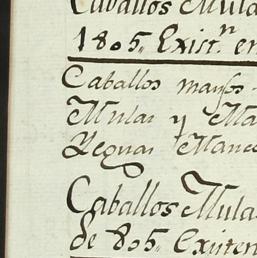 Caballos Mula
1805,, Exist.ⁿ en
Caballos
Mulas y Ma
Yeguas Manc
Caballos Mula
de 805,, Existen